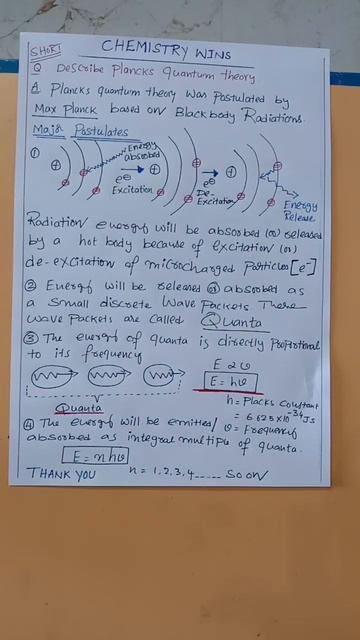 SHORT
CHEMISTRY WINS
Q Describe Plancks quantum theory
A Plancks quantum theory was postulated by
Max Planck based on Blackbody Radiations.
Major Postulates
① + Energy absorbed + +
e⊖ Excitation
e⊖ De-Excitation
Energy Release
Radiation energy will be absorbed (or) released
by a hot body because of excitation (or)
de-excitation of microcharged particles [e⁻]
② Energy will be released or absorbed as
a small discrete wave packets There
wave packets are called Quanta
③ The energy of quanta is directly proportional
to its frequency
E α υ
E = hυ
h = Placks constant
= 6.625×10⁻³⁴ Js
υ = Frequency
Quanta
④ The energy will be emitted/
absorbed as integral multiple of quanta.
E = nhυ
n = 1, 2, 3, 4 ..... so on
THANK YOU